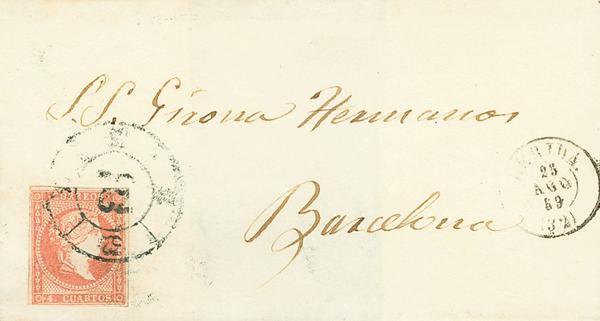 S.S. Girona Hermanos
Barcelona
CORREOS
4. CUARTOS
25
AGO
59
(32)